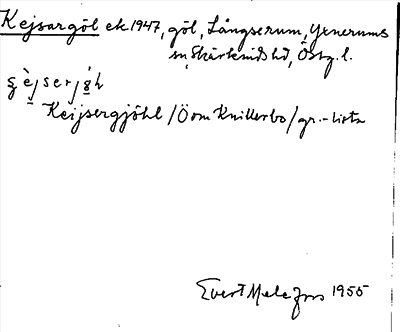 Kejsargöl ek. 1947, göl, Långserum, Yxnerums
sn, Skärkinds hd, Östg. l.
Keijsergjöhl / Ö om Knillerbo / gr.-lista
Evert Melefors 1955